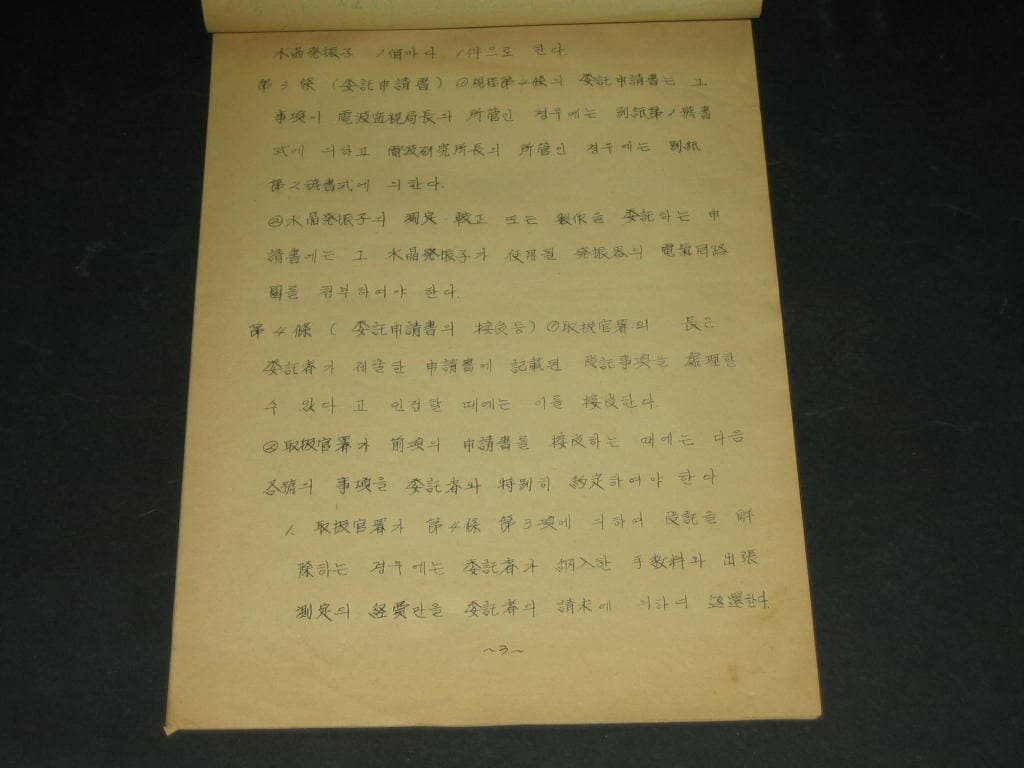 水晶発振子 1個마다 1件으로 한다.
第3條 (委託申請書) ①規程第4條의 委託申請書는 그
事項이 電波監視局長의 所管인 경우에는 別紙第1號書
式에 의하고 電波研究所長의 所管인 경우에는 別紙
第2號書式에 의한다.
②水晶発振子의 測定 較正 또는 製作을 委託하는 申
請書에는 그 水晶発振子가 使用될 発振器의 電氣回路
圖를 첨부하여야 한다.
第4條 (委託申請書의 接受等) ①取扱官署의 長은
委託者가 제출한 申請書에 記載된 委託事項을 處理할
수 있다고 인정할 때에는 이를 接受한다.
②取扱官署가 前項의 申請書를 接受하는 때에는 다음
各號의 事項을 委託者와 特別히 約定하여야 한다
1. 取扱官署가 第4條 第3項에 의하여 委託을 解
除하는 경우에는 委託者가 納入한 手数料와 出張
測定의 経費만을 委託者의 請求에 의하여 返還한다.
~3~